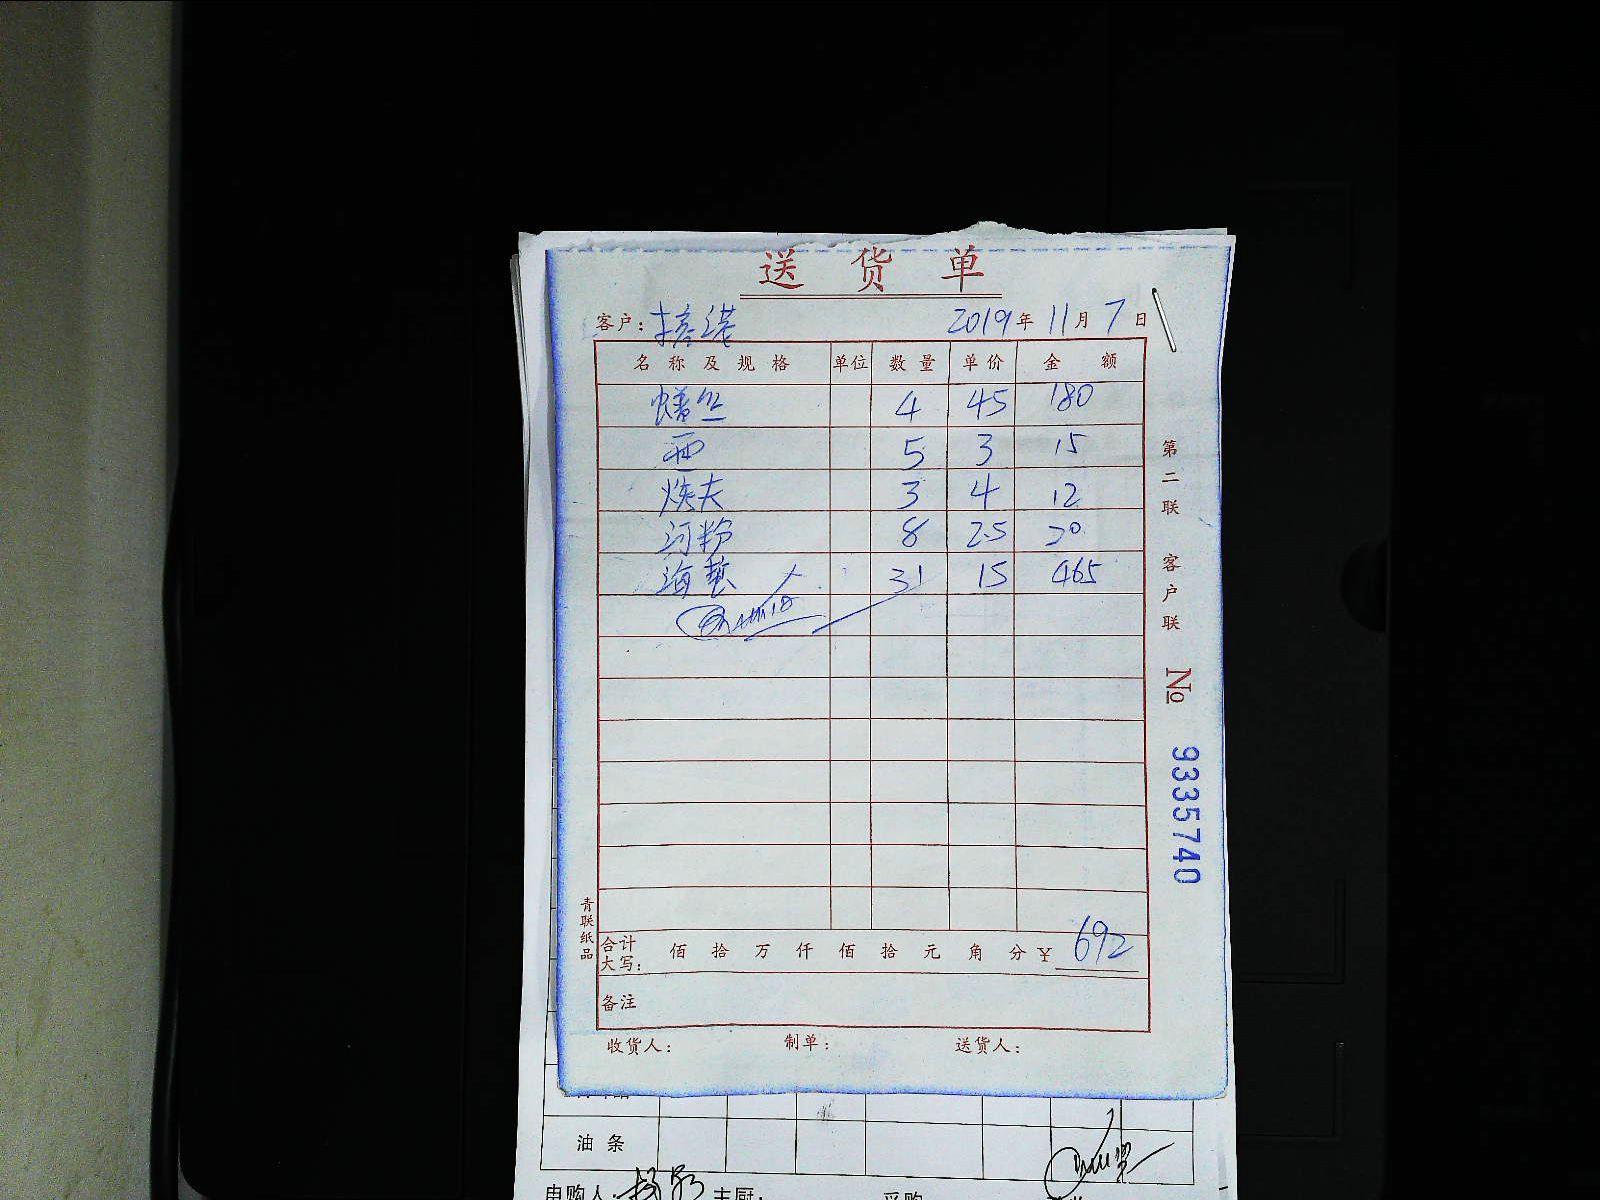 送货单
客户: 2019年11月7日
名称及规格 单位 数量 单价 金额
鳝丝 4 45 180
5 3 15
烤夫 3 4 12
河粉 8 2.5 20
海蜇 31 15 465
合计大写: 佰 拾 万 仟 佰 拾 元 角 分 ¥ 692
备注
收货人: 制单: 送货人:
第二联 客户联 No 9335740
青联纸品
油条
申购人: 主厨: 采购